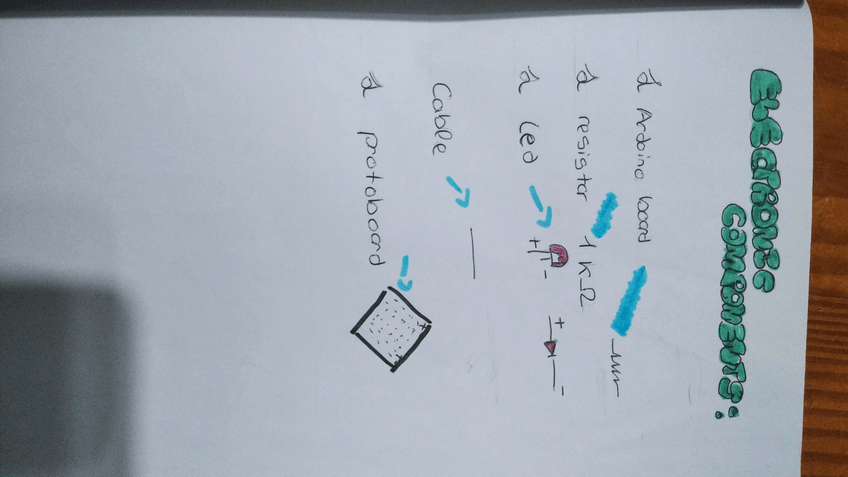 ELECTRONIC
COMPONENTS:
1 Arduino board
1 resistor 1 KΩ
1 Led + -
+ -
Cable
1 protoboard